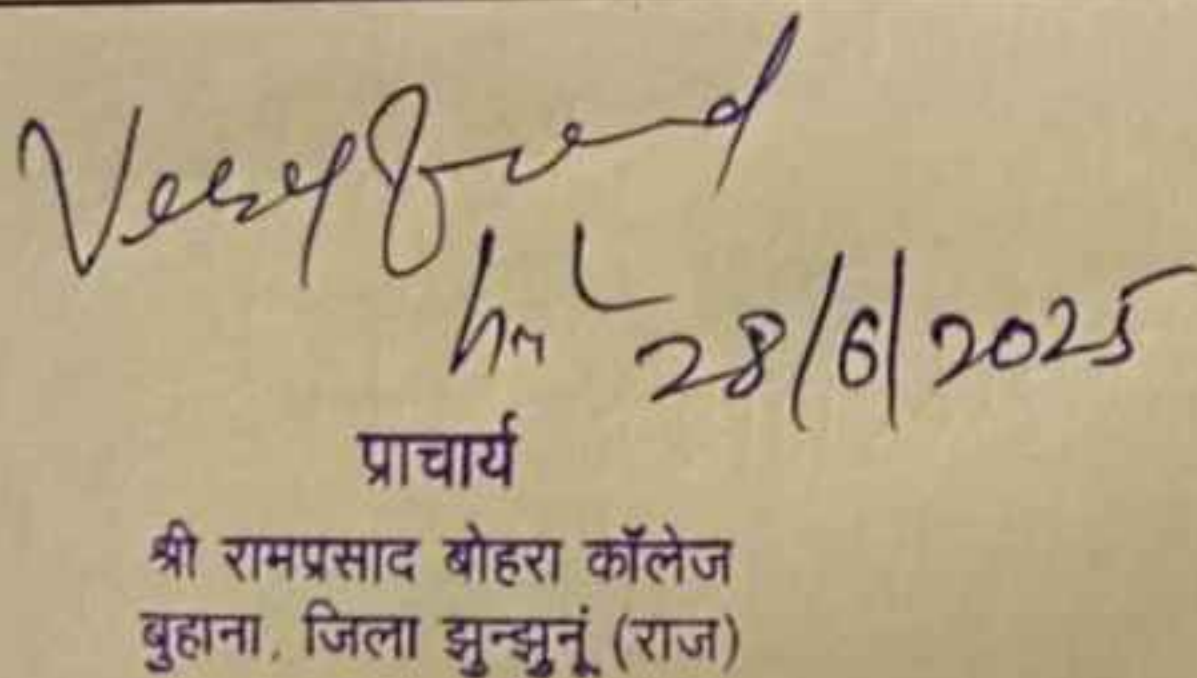 28/6/2025
प्राचार्य
श्री रामप्रसाद बोहरा कॉलेज
बुहाना, जिला झुन्झुनूं (राज)